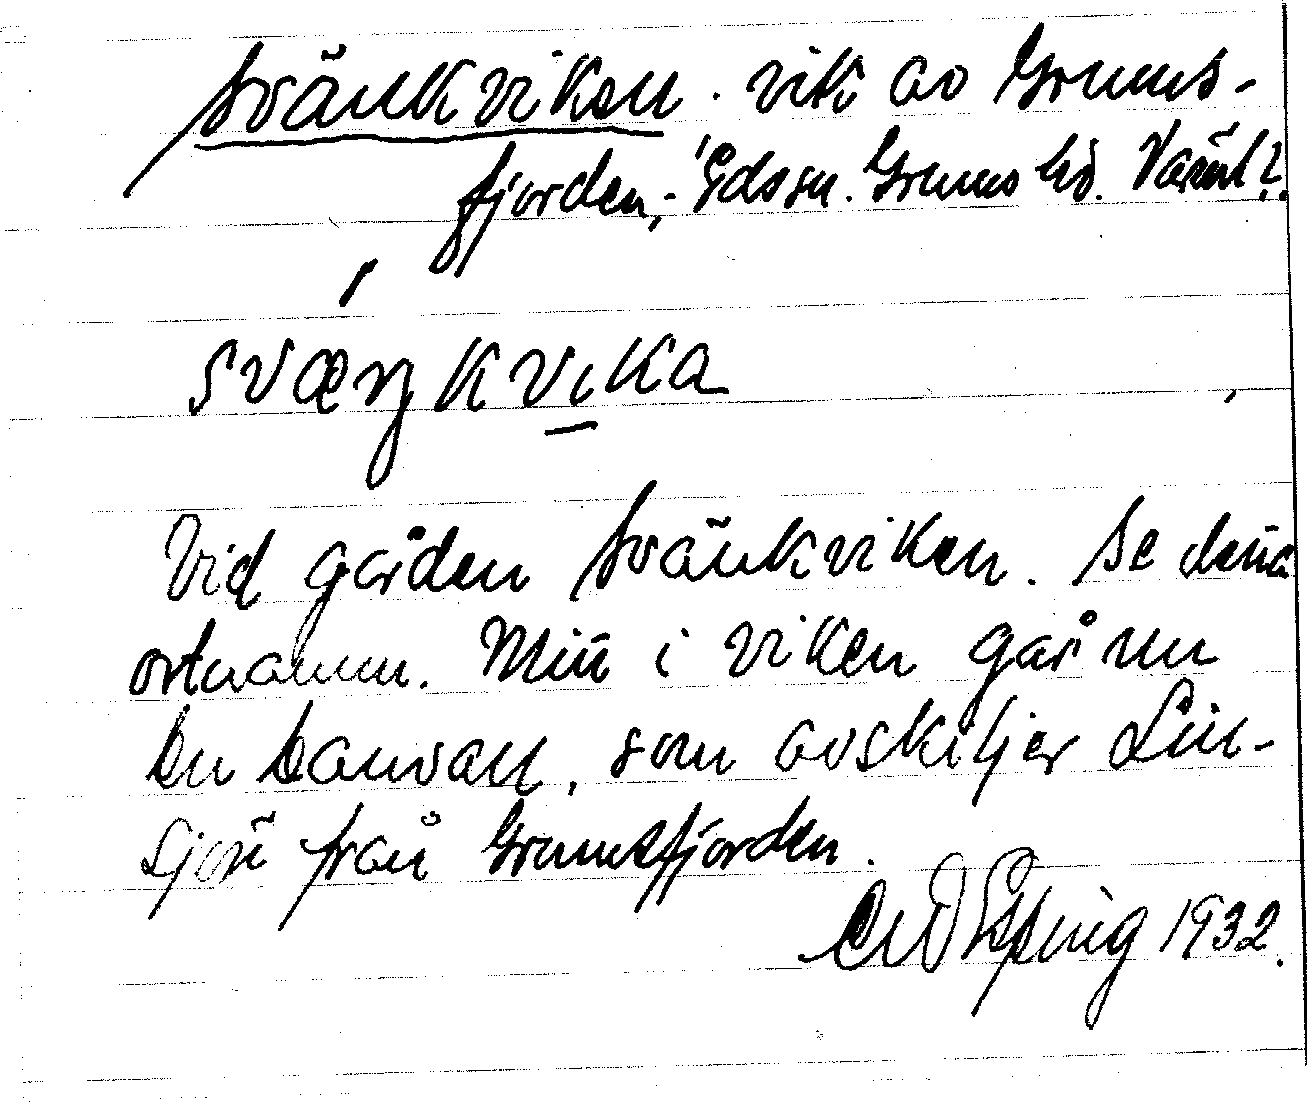 Svänkviken. vik av Grums-
fjorden, Eds sn. Grums hd. Värml.
sväŋkvika
Vid gården Svänkviken. Se detta
ortnamn. Mitt i viken går nu
en banvall, som avskiljer Lill-
sjön från Grumsfjorden.
1932.